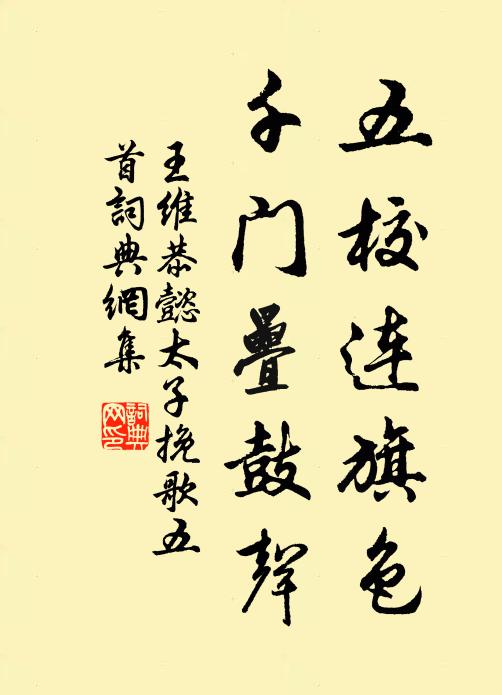 五校連旗色
千門疊鼓聲
王維恭懿太子挽歌五
首詞典網集
詞典
网印